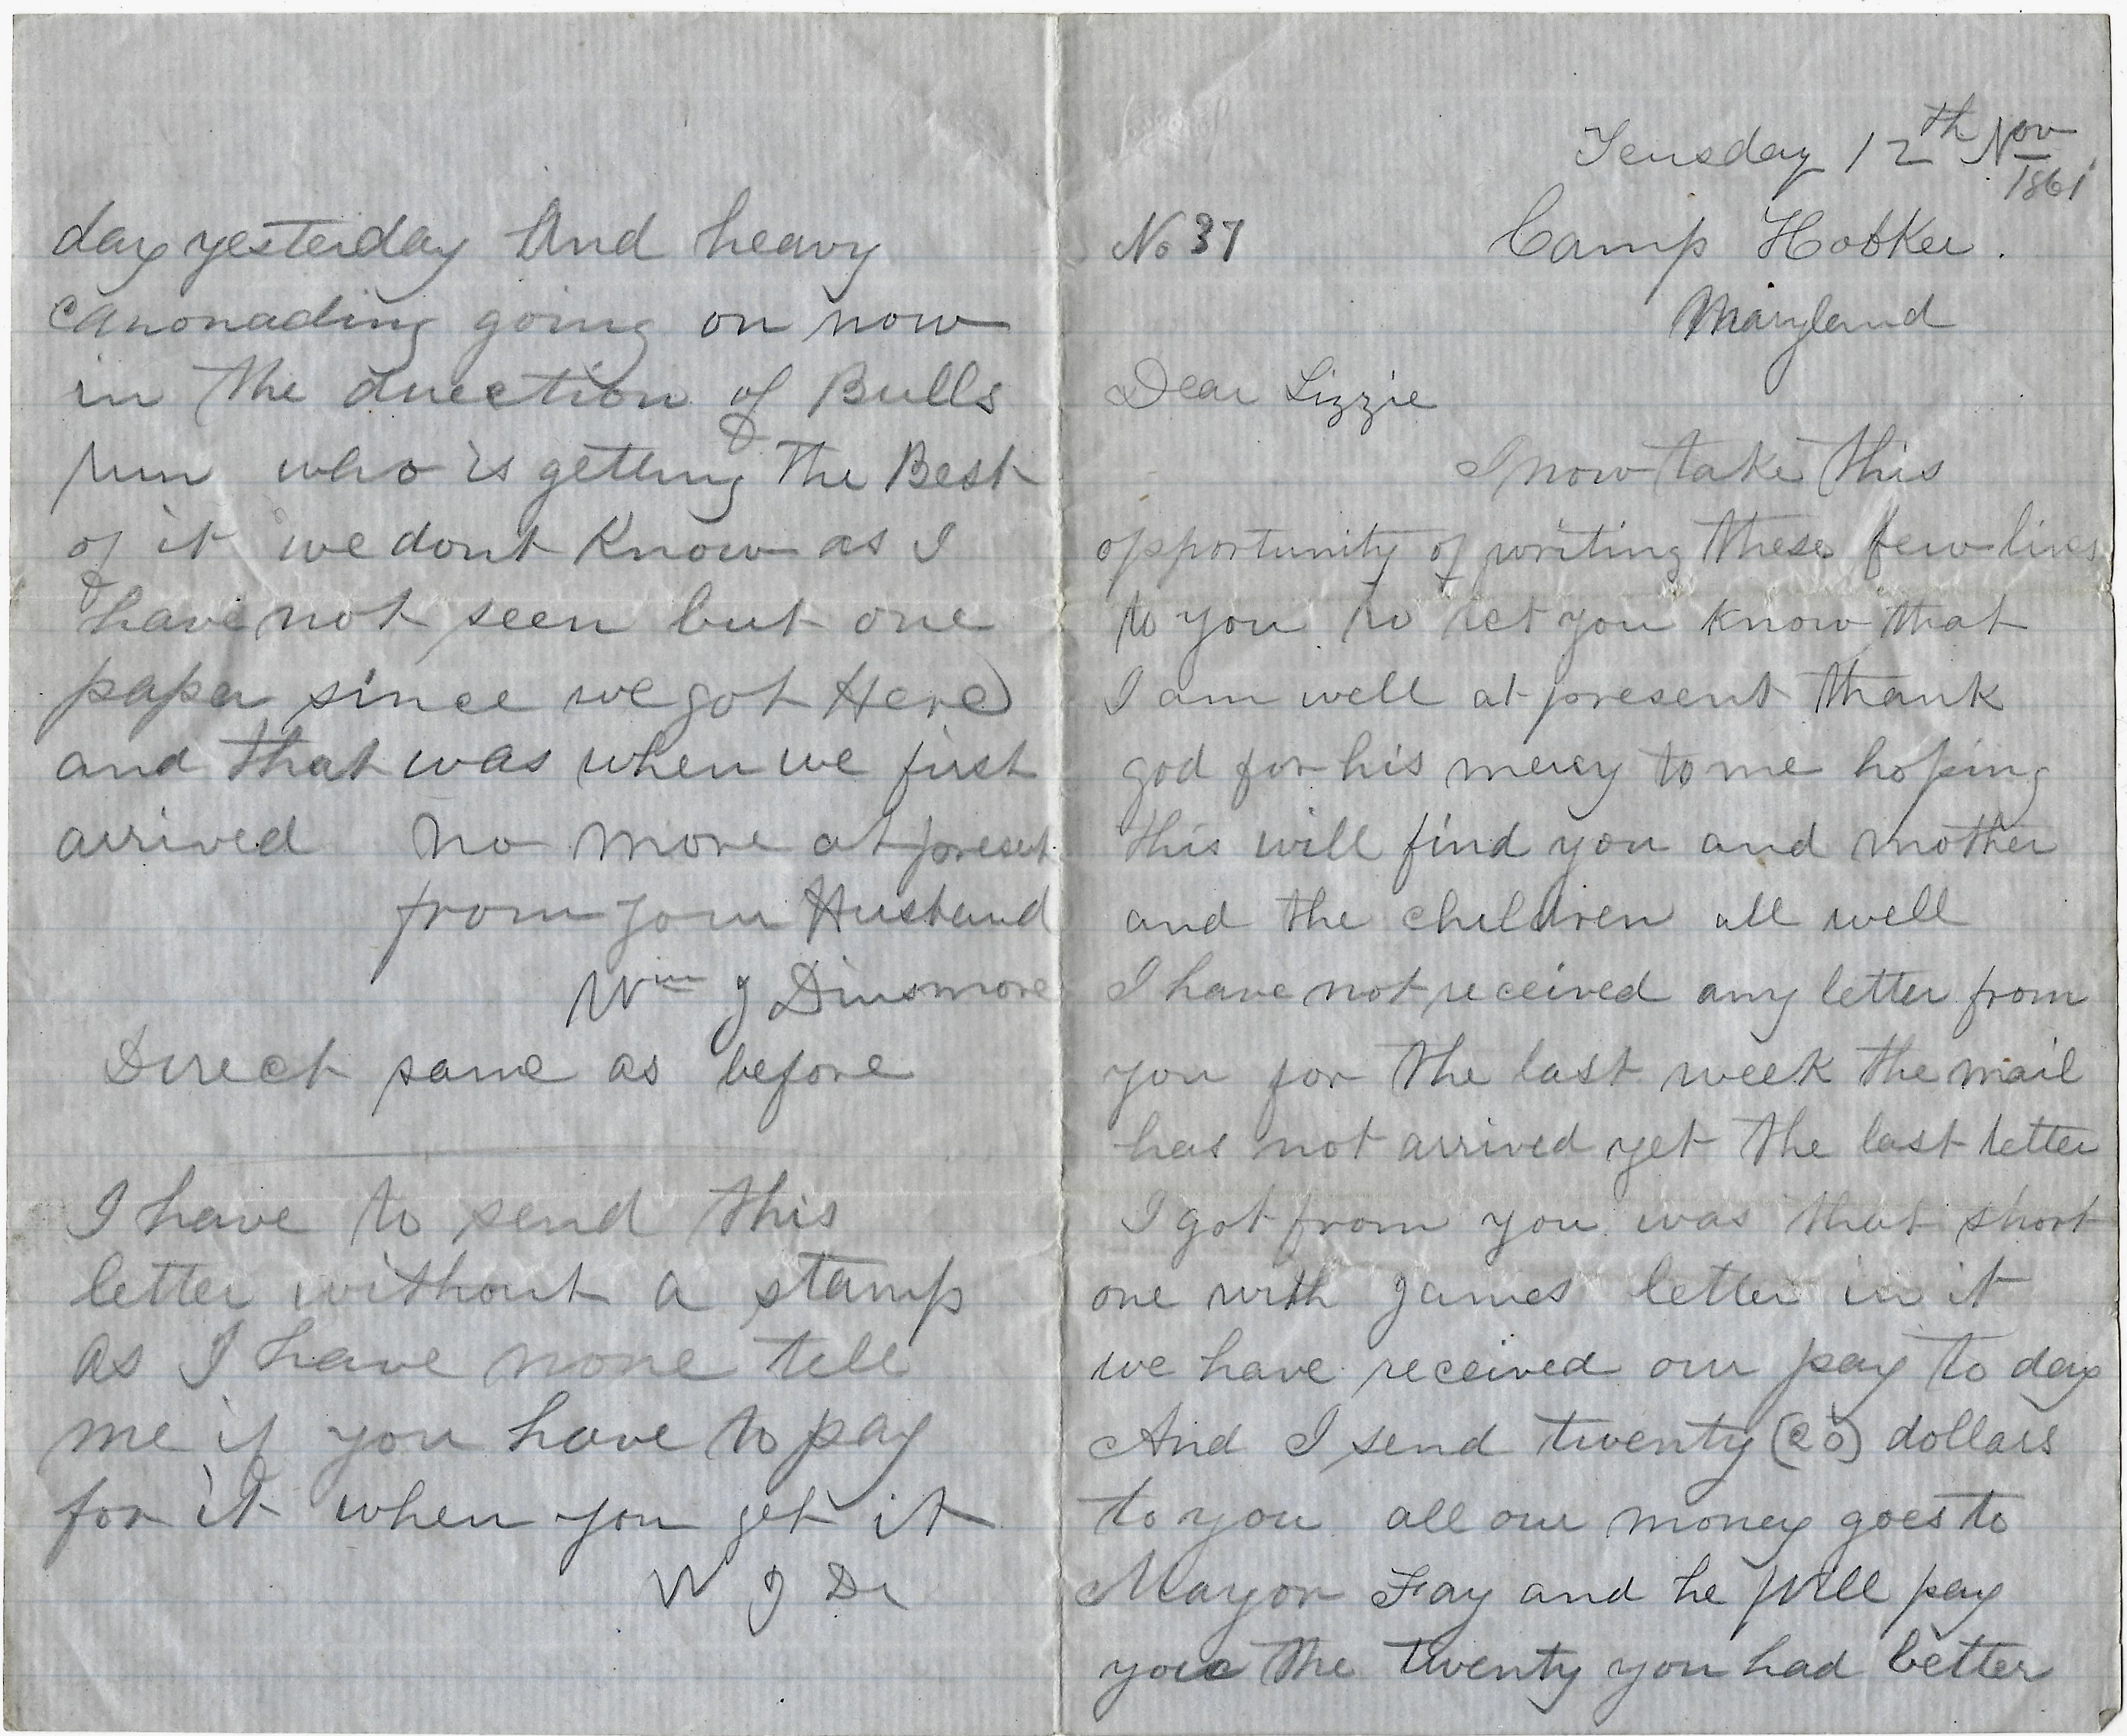 Teusday 12th Nov
1861
No 37 Camp Hooker.
Maryland
Dear Lizzie
I now take this
opportunity of writing these few lines
to you to let you know that
I am well at present thank
god for his mercy to me hoping
this will find you and mother
and the children all well
I have not received any letter from
you for the last week the mail
has not arrived yet the last letter
I got from you was that short
one with James letter in it
we have received our pay to day
And I send twenty (20) dollars
to you all our money goes to
Mayor Fay and he will pay
you the twenty you had better
day yesterday And heavy
canonading going on now
in the direction of Bulls
run who is getting the Best
of it we dont Know as I
have not seen but one
paper since we got Here
and that was when we first
arrived no more at present
from your Husband
Wm J Dinsmore
Direct same as before
I have to send this
letter without a stamp
as I have none tell
me if you have to pay
for it when you get it
W J D